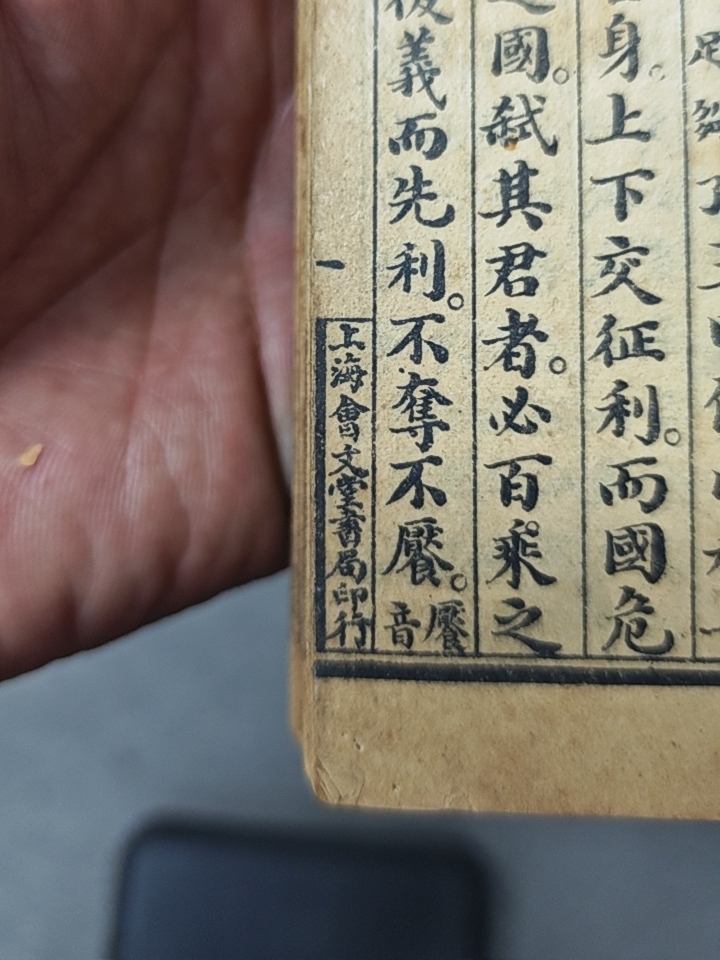 身。上下交征利。而國危
國。弑其君者。必百乘之
後義而先利。不奪不饜。饜音
一
上海會文堂書局印行